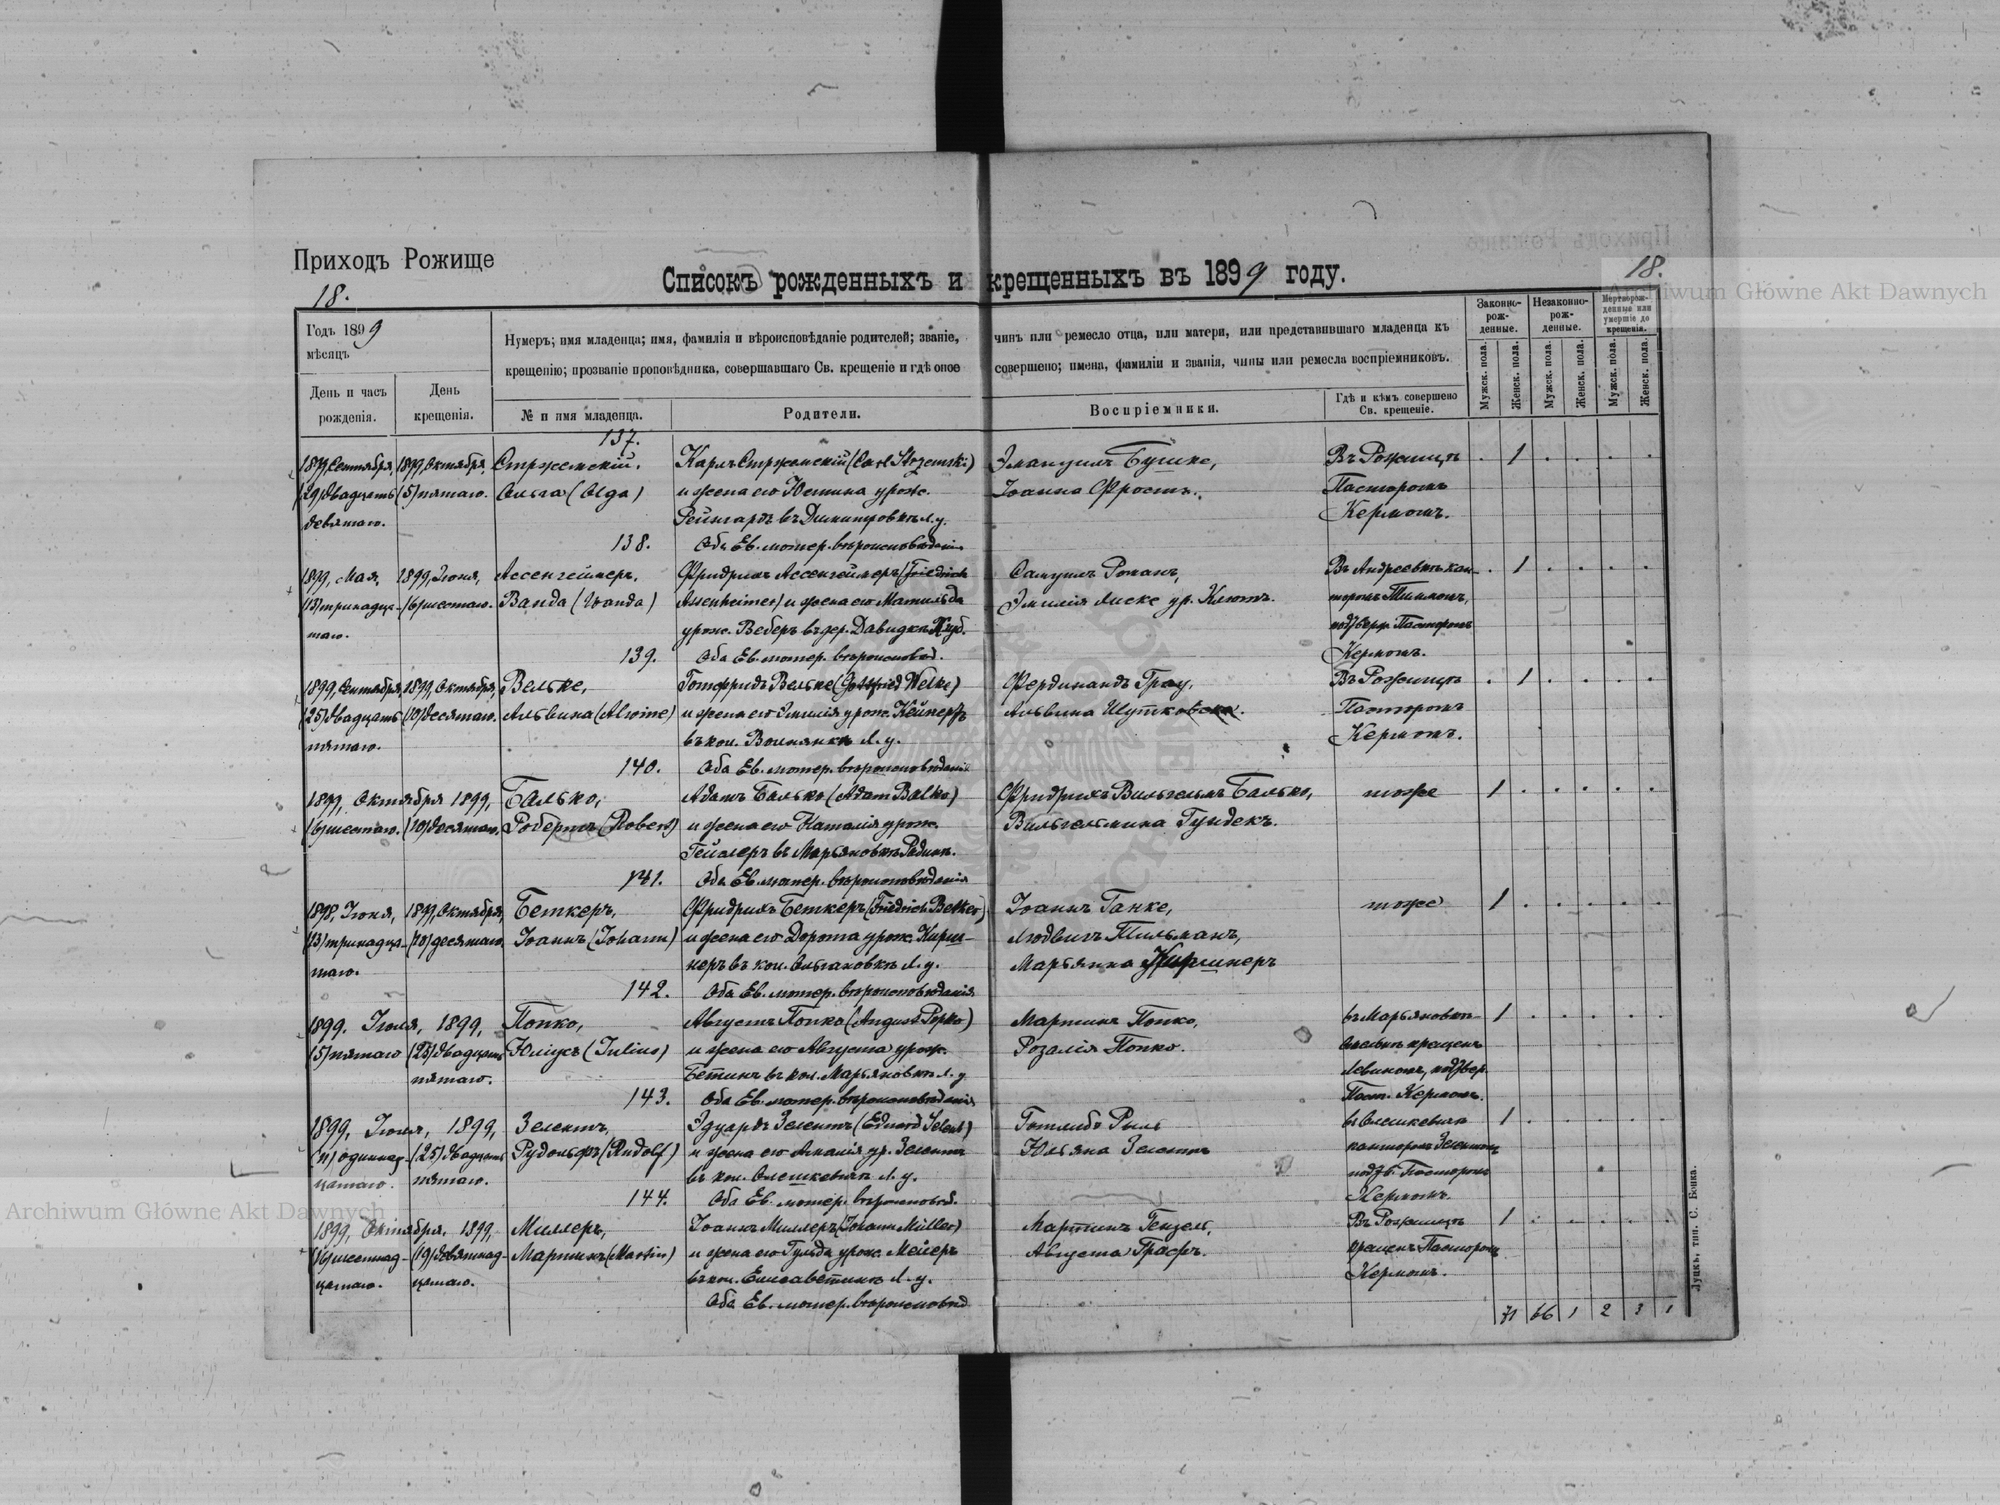 Приходъ Рожище
18.
Списокъ рожденныхъ и крещенныхъ въ 1899 году.
18.
Archiwum Główne Akt Dawnych
Годъ 1899
мѣсяцъ
День и часъ
рожденія.
День
крещенія.
Нумеръ; имя младенца; имя, фамилія и вѣроисповѣданіе родителей; званіе, чинъ или ремесло отца, или матери, или представившаго младенца къ
крещенію; прозваніе проповѣдника, совершавшаго Св. крещеніе и гдѣ оное совершено; имена, фамиліи и званія, чины или ремесла воспріемниковъ.
№ и имя младенца.
Родители.
Воспріемники.
Гдѣ и кѣмъ совершено
Св. крещеніе.
Законно-
рож-
денные.
Незаконно-
рож-
денные.
Мертворож-
денные или
умершіе до
крещенія.
Мужск. пола.
Женск. пола.
Мужск. пола.
Женск. пола.
Мужск. пола.
Женск. пола.
137.
1899, Сентября, 1899, Октября, Стржемскій, Карлъ Стржемскій (Carl Strzemski) Эмануилъ Бушке, Въ Рожищѣ 1
(29) двадцать (5) пятаго. Ольга (Olga) и жена его Юстина урож. Іоанна Фростъ. Пасторомъ
девятаго. Рейнгардъ въ Дмитровкѣ Л. у. Керномъ.
138. Оба Ев. лютер. вѣроисповѣданія
1899, Мая, 1899, Іюня, Ассенгеймеръ, Фридрихъ Ассенгеймеръ (Friedrich Самуилъ Романъ, Въ Андреевкѣ кан- 1
(13) тринадца- (6) шестаго. Ванда (Wanda) Assenheimer) и жена его Матильда Эмилія Лиске ур. торомъ
таго. урож. Веберъ въ дер. Давидки подтверж. Пасторомъ
139. Оба Ев. лютер. вѣроисповѣд. Керномъ.
1899, Сентября, 1899, Октября, Вельке, Готфридъ Вельке (Gottfried Welke) Фердинандъ Грау, Въ Рожищѣ 1
(25) двадцать (10) десятаго. Альвина (Alwine) и жена его Эмилія урож. Альвина Пасторомъ
пятаго. въ кол. Волнянкѣ Л. у. Керномъ.
140. Оба Ев. лютер. вѣроисповѣданія
1899, Октября 1899, Балько, Адамъ Балько (Adam Balko) Фридрихъ Вильгельмъ Балько, тоже 1
(6) шестаго. (10) десятаго. Робертъ (Robert) и жена его Наталія урож. Вильгельмина Гундекъ.
въ Марьяновкѣ
141. Оба Ев. лютер. вѣроисповѣданія
1898, Іюня, 1899, Октября, Беткеръ, Фридрихъ Беткеръ (Friedrich Betker) Іоаннъ Ганке, тоже 1
(13) тринадца- (10) десятаго. Іоаннъ (Johann) и жена его Дорота урож. Кирш- Людвигъ Тильманъ,
таго. неръ въ кол. Ольгановкѣ Л. у. Марьянна Киршнеръ
142. Оба Ев. лютер. вѣроисповѣданія
1899. Іюля, 1899, Попко, Августъ Попко (August Popko) Мартинъ Попко, въ Марьяновкѣ 1
(5) пятаго (25) двадцать Юліусъ (Julius) и жена его Августа урож. Розалія Попко. крещенъ
пятаго. Бетинъ въ кол. Марьяновкѣ Л. у. Левиномъ, подтвер.
143. Оба Ев. лютер. вѣроисповѣданія Паст. Керномъ.
1899, Іюля, 1899, Зелентъ, Эдуардъ Зелентъ (Eduard Selent) Готлибъ Рыль въ Олешкевичѣ 1
(11) одиннад- (25) двадцать Рудольфъ (Rudolf) и жена его Амалія ур. Зелентъ Юльяна Зелентъ канторомъ Зелентомъ
цатаго. пятаго. въ кол. Олешкевичѣ Л. у. подтв. Пасторомъ
144. Оба Ев. лютер. вѣроисповѣд. Керномъ.
1899, Октября, 1899, Миллеръ, Іоаннъ Миллеръ (Johann Müller) Мартинъ Гензель, Въ Рожищѣ 1
(16) шестнад- (19) девятнад- Мартинъ (Martin) и жена его Гульда урож. Мейеръ Августа Графъ. крещенъ Пасторомъ
цатаго. цатаго. въ кол. Елисаветинѣ Л. у. Керномъ.
Оба Ев. лютер. вѣроисповѣд
71 66 1 2 3 1
Луцкъ, тип. С. Бонка.
Archiwum Główne Akt Dawnych